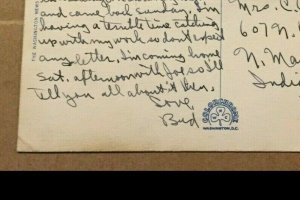 and came back Sunday. I'm
having a terrible time catching
up with my work so don't expect
any letter. I'm coming home
Sat. afternoon with Joe so I'll
tell you all about it then.
Love,
Bud
Mrs. C.
607 N.
N. Ma
Indi
THE WASHINGTON NEWS
WASHINGTON, D.C.